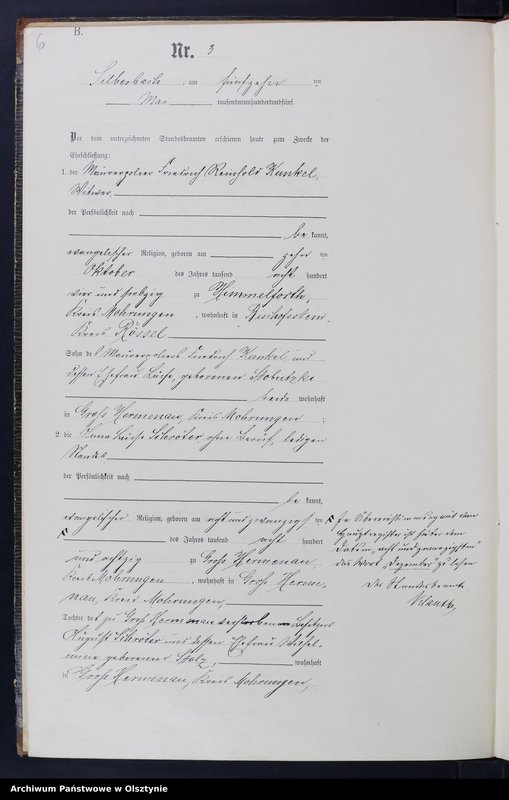 6
B.
Nr. 3
Silberbach, am fünfzehn ten
Mai tausendneunhundertundfünf.
Vor dem unterzeichneten Standesbeamten erschienen heute zum Zwecke der
Eheschließung:
1. der Maurerpolier Friedrich Reinhold Kunkel,
Witwer,
der Persönlichkeit nach
be kannt,
evangelischer Religion, geboren am zehn ten
Oktober des Jahres tausend acht hundert
vier und siebzig zu Himmelforth,
Kreis Mohrungen, wohnhaft in Bischofstein,
Kreis Rössel
Sohn des Maurerpoliers Friedrich Kunkel und
dessen Ehefrau Luise, geborenen
beide wohnhaft
in Groß Hermenau, Kreis Mohrungen;
2. die Anna Luise Schröter ohne Beruf, ledigen
Standes
der Persönlichkeit nach
be kannt,
evangelischer Religion, geboren am acht und zwanzigst ten
des Jahres tausend acht hundert
und achtzig zu Groß Hermenau
Kreis Mohrungen, wohnhaft in Groß Herme-
nau, Kreis Mohrungen,
Tochter des zu Groß Hermenau verstorbenen Besitzers
August Schröter und dessen Ehefrau Wilhel-
mine geborenen Wolz, wohnhaft
in Groß Hermenau, Kreis Mohrungen,
In Übereinstimmung mit dem
Hauptregister ist hinter dem
Datum „acht und zwanzigsten“
das Wort „Dezember“ zu lesen
Der Standesbeamte
Archiwum Państwowe w Olsztynie